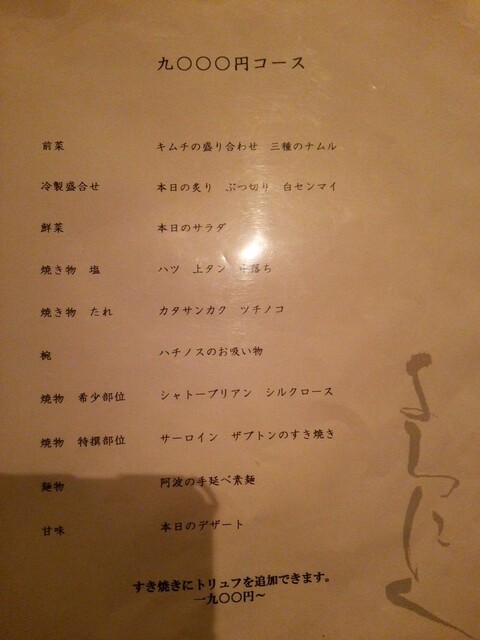 九〇〇〇円コース
前菜 キムチの盛り合わせ 三種のナムル
冷製盛合せ 本日の炙り ぶつ切り 白センマイ
鮮菜 本日のサラダ
焼き物 塩 ハツ 上タン 落ち
焼き物 たれ カタサンカク ツチノコ
椀 ハチノスのお吸い物
焼物 希少部位 シャトーブリアン シルクロース
焼物 特撰部位 サーロイン ザブトンのすき焼き
麺物 阿波の手延べ素麺
甘味 本日のデザート
すき焼きにトリュフを追加できます。
一九〇〇円~
よろにく